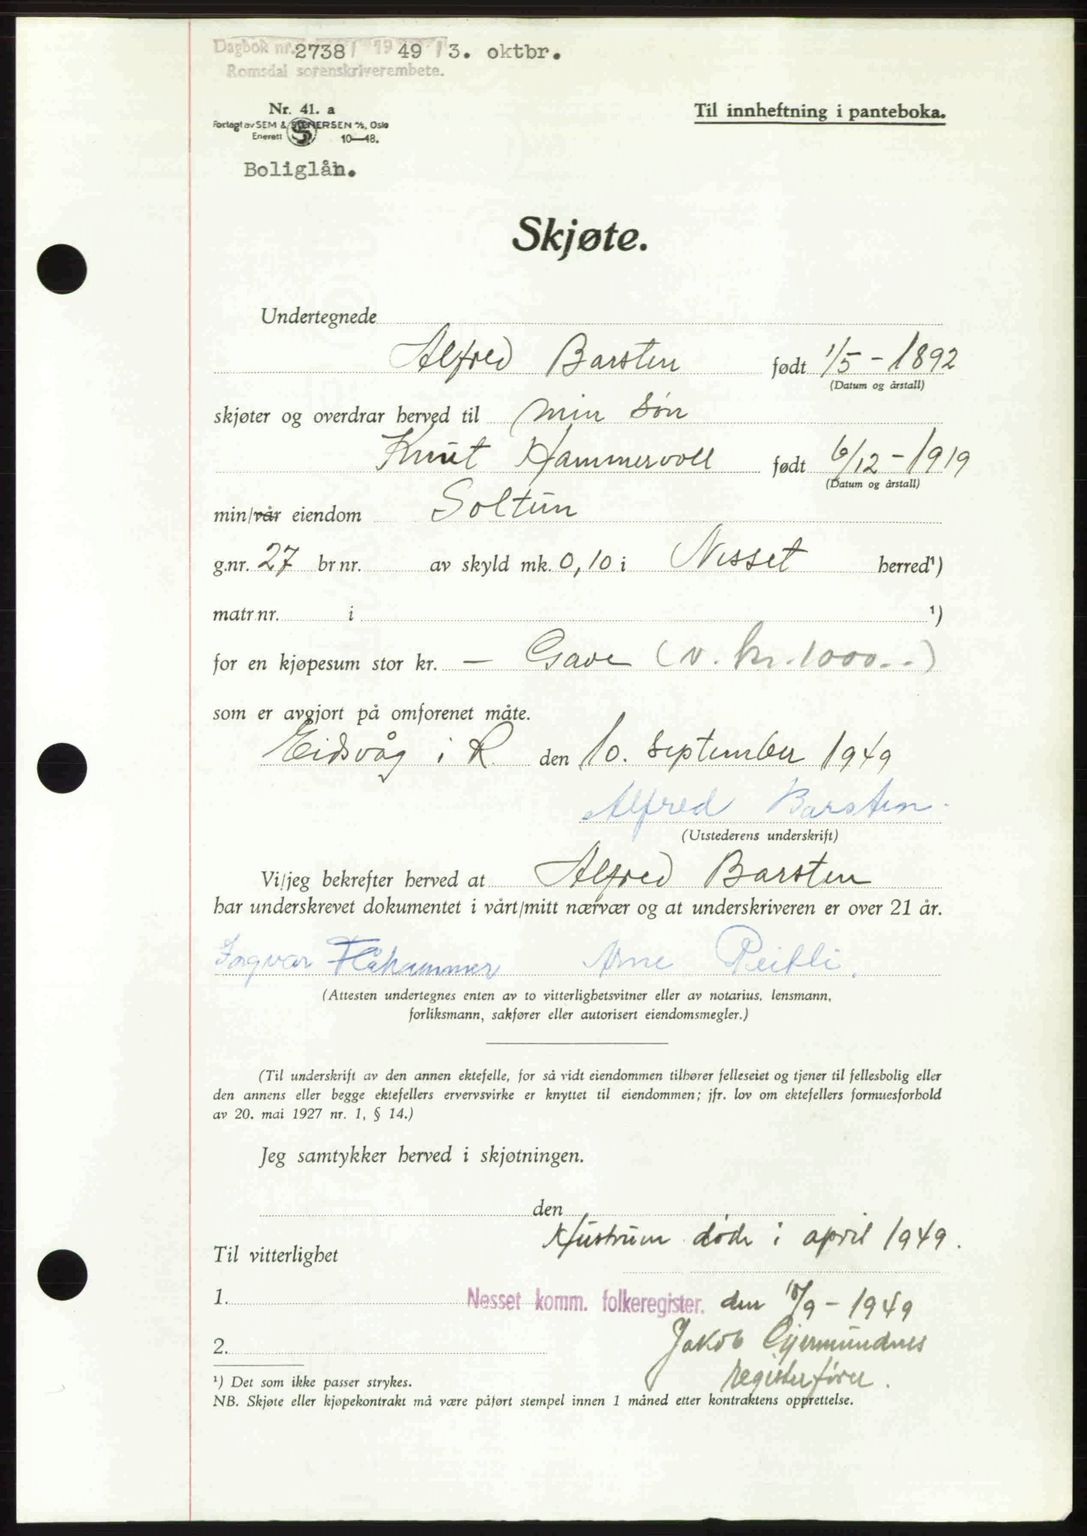 Dagbok nr. 2738 / 1949 / 3. oktbr.
Romsdal sorenskriverembete.
Nr. 41. a
Forlagt av SEM & STENERSEN A/S, Oslo
Enerett 10-48.
Til innheftning i panteboka.
Boliglån.
Skjøte.
Undertegnede
Alfred Barsten født 1/5 - 1892
(Datum og årstall)
skjøter og overdrar herved til min søn
Knut Hammervoll født 6/12 - 1919
(Datum og årstall)
min/vår eiendom Soltun
g.nr. 27 br.nr. av skyld mk. 0,10 i Nesset herred¹)
matr.nr. i ¹)
for en kjøpesum stor kr. — Gave (v. kr. 1000.-)
som er avgjort på omforenet måte.
Eidsvåg i R. den 10. september 1949
Alfred Barsten.
(Utstederens underskrift)
Vi/jeg bekrefter herved at Alfred Barsten
har underskrevet dokumentet i vårt/mitt nærvær og at underskriveren er over 21 år.
Ingvar Flåhammer Arne
(Attesten undertegnes enten av to vitterlighetsvitner eller av notarius, lensmann,
forliksmann, sakfører eller autorisert eiendomsmegler.)
(Til underskrift av den annen ektefelle, for så vidt eiendommen tilhører felleseiet og tjener til fellesbolig eller
den annens eller begge ektefellers ervervsvirke er knyttet til eiendommen; jfr. lov om ektefellers formuesforhold
av 20. mai 1927 nr. 1, § 14.)
Jeg samtykker herved i skjøtningen.
den
Hustrum døde i april 1949.
Til vitterlighet
1. Nesset komm. folkeregister. den 10/9 - 1949
Jakob Gjermundnes
2.
registerfører.
¹) Det som ikke passer strykes.
NB. Skjøte eller kjøpekontrakt må være påført stempel innen 1 måned etter kontraktens opprettelse.